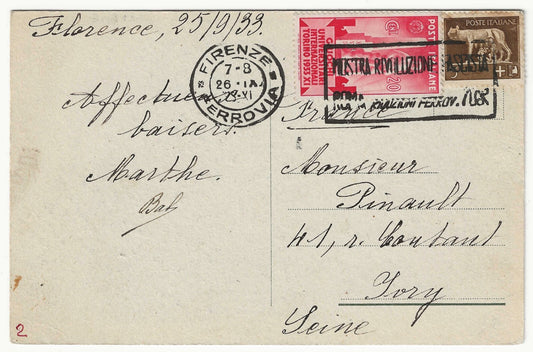 Florence, 25/9/33.
FIRENZE
7-8
26·IX
33-XI
FERROVIA
GIUOCHI
UNIVERSITARI
INTERNAZIONALI
TORINO 1933 XI
POSTE ITALIANE
20
POSTE ITALIANE
MOSTRA RIVOLUZIONE FASCISTA
ROMA RIDUZIONI FERROV. 70%
Affectueux
baisers.
Marthe.
France
Monsieur
Pinault
41, r. Coutant
Ivry
Seine
2